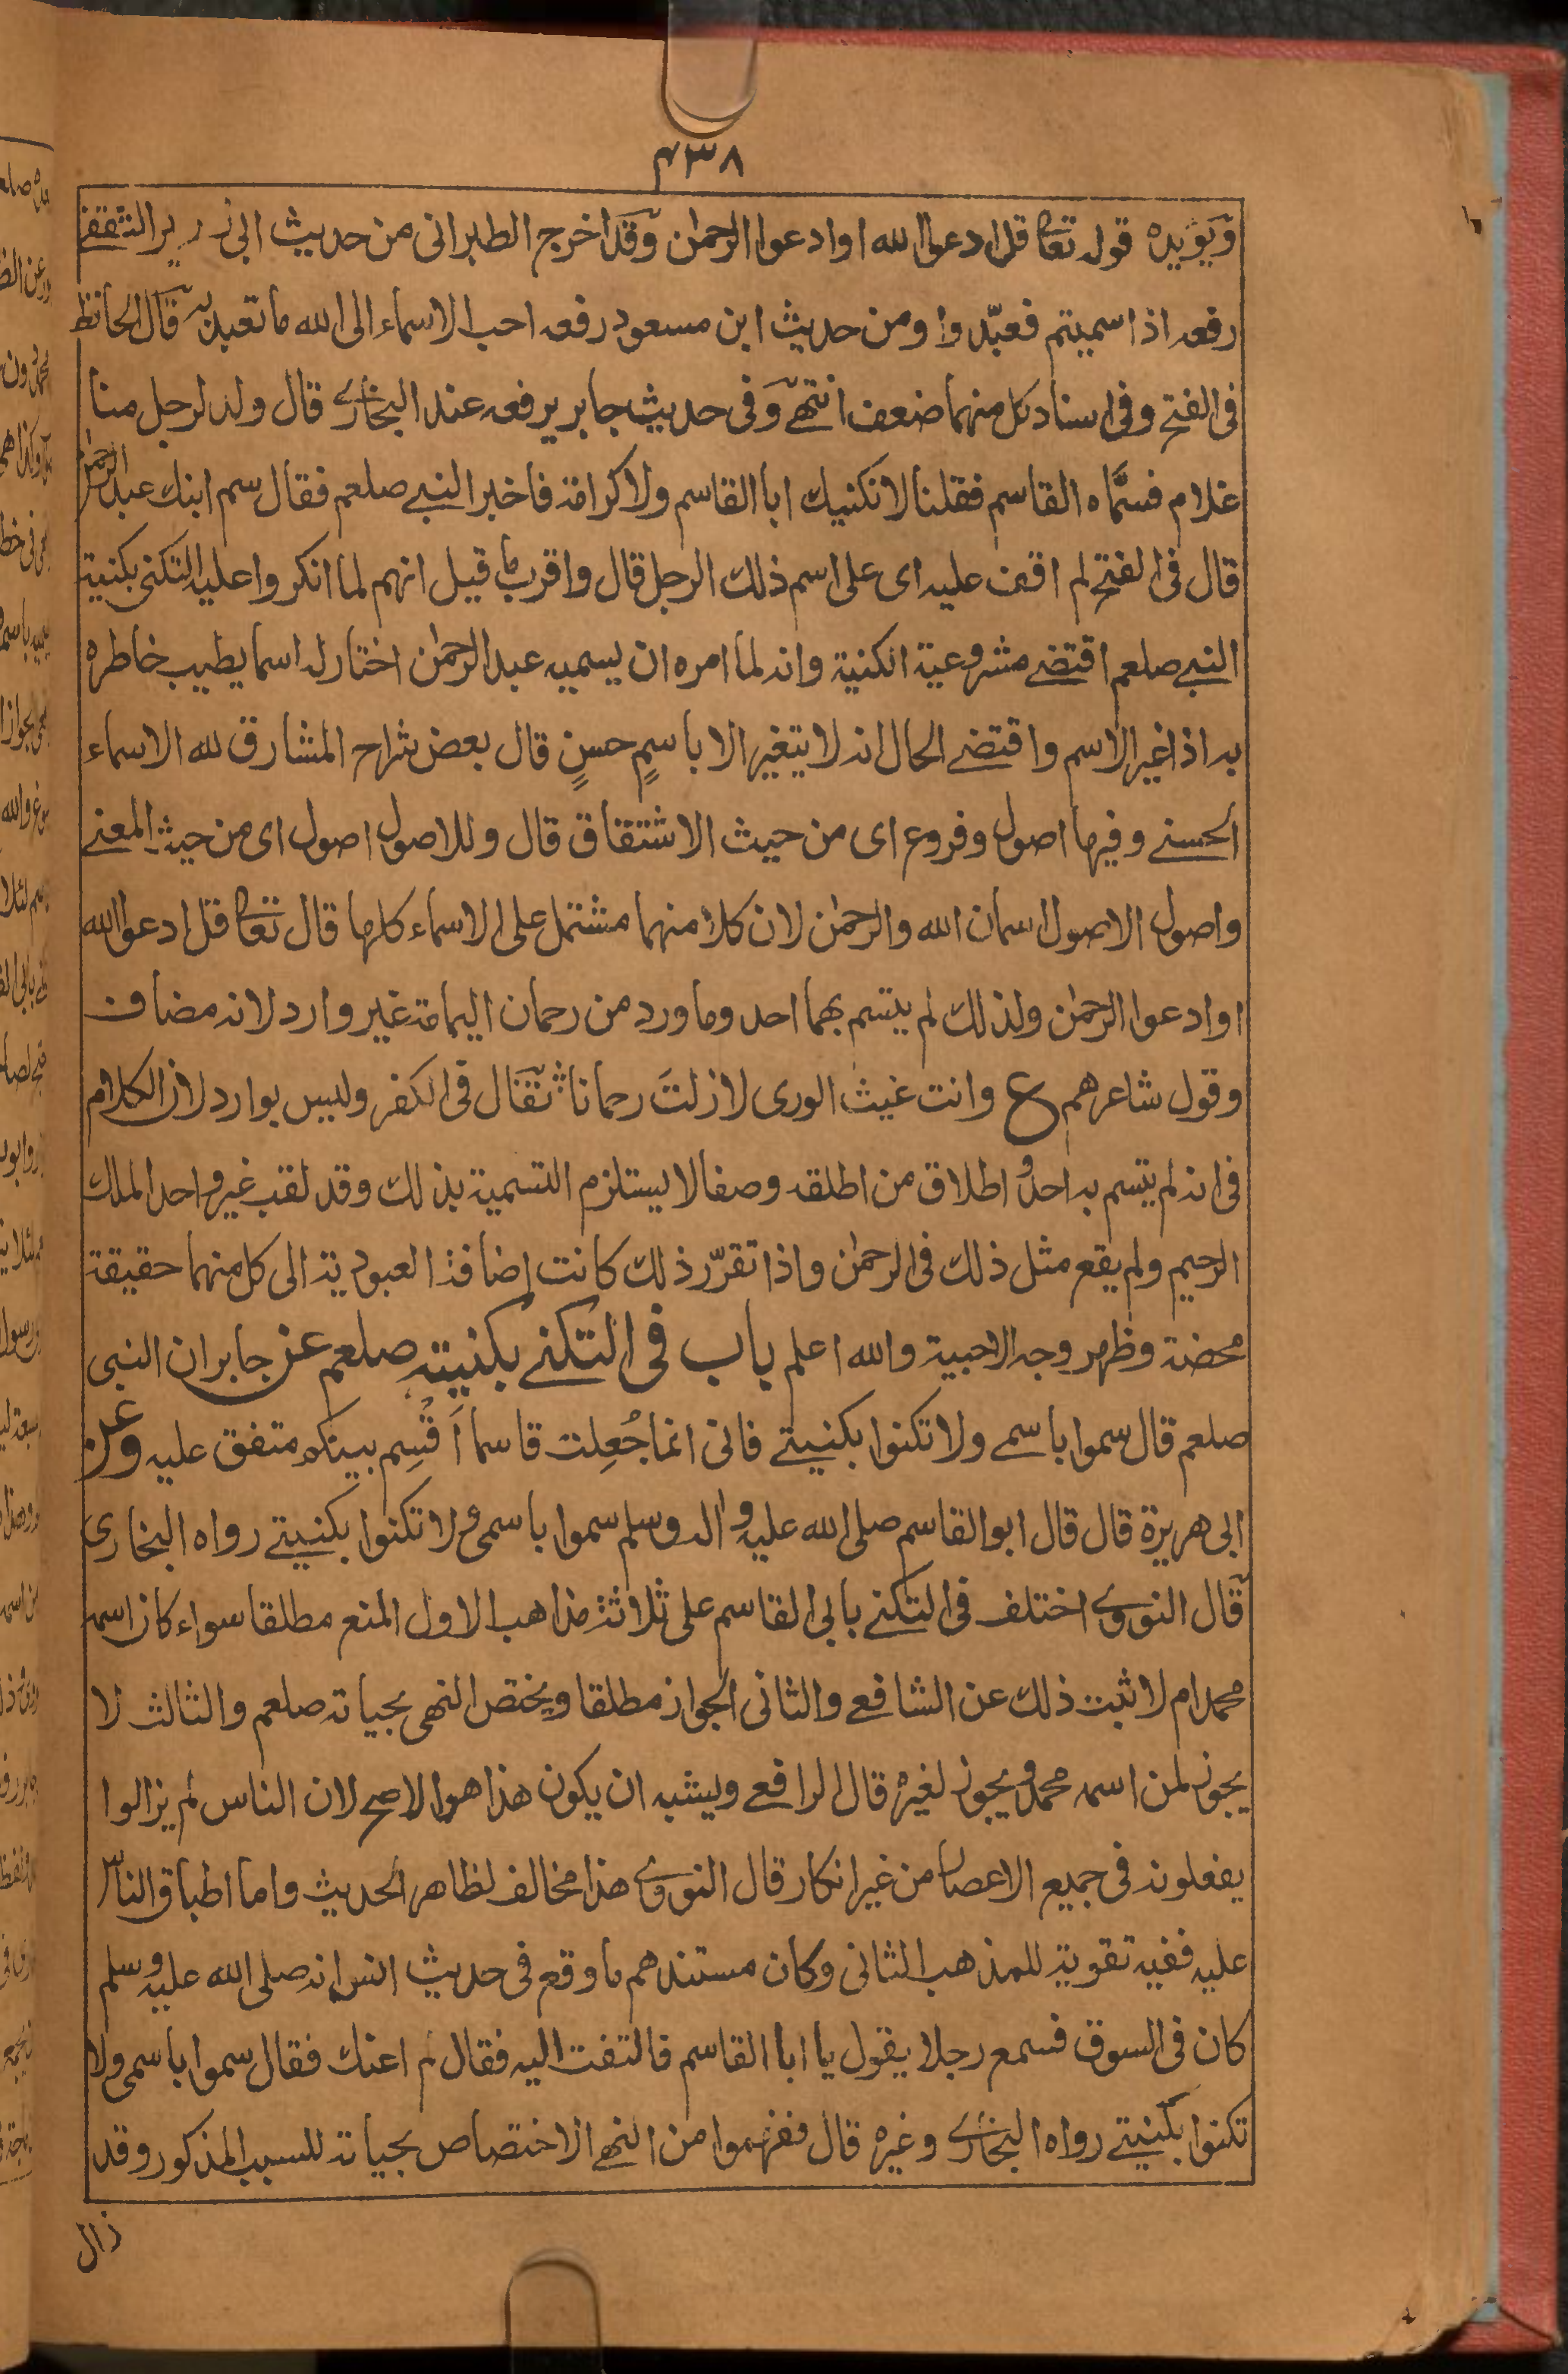 ۴۳۸
ويؤيده قوله تعا قل ادعوا الله او ادعوا الرحمٰن وقد اخرج الطبرانى من حديث ابى زهير الثقفے
رفعه اذا سميتم فعبّدوا ومن حديث ابن مسعود رفعه احب الاسماء الى الله ما تعبد به قال الحافظ
فى الفتح وفى اسناد كل منهما ضعف انتهے وفى حديث جابر يرفعه عند البخارے قال ولد لرجل منا
غلام فسمّاه القاسم فقلنا لا نكنيك ابا القاسم ولا كرامة فاخبر النبے صلعم فقال سم ابنك عبد الرحمٰن
قال فى الفتح لم اقف عليه اى على اسم ذلك الرجل قال واقرب ما قيل انهم لما انكروا عليه التكنى بكنية
النبے صلعم اقتضے مشروعية الكنية وانه لما امره ان يسميه عبد الرحمٰن اختار له اسما يطيب خاطره
به اذا غير الاسم واقتضے الحال انه لا يتغير الا باسمٍ حسنٍ قال بعض شراح المشارق لله الاسماء
الحسنے وفيها اصول وفروع اى من حيث الاشتقاق قال وللاصول اصول اى من حيث المعنے
واصول الاصول اسمان الله والرحمٰن لان كلا منهما مشتمل على الاسماء كلها قال تعا قل ادعوا الله
او ادعوا الرحمٰن ولذلك لم يتسم بهما احد وما ورد من رحمان اليمامة غير وارد لانه مضاف
وقول شاعرهم ع وانت غيث الورى لا زلتَ رحمانا ؛ تغال فى الكفر وليس بوارد لان الكلام
فى انه لم يتسم به احد و اطلاق من اطلقه وصفا لا يستلزم التسمية بذلك وقد لقب غير واحد الملك
الرحيم ولم يقع مثل ذلك فى الرحمٰن واذا تقرّر ذلك كانت اضافة العبودية الى كل منهما حقيقة
محضة وظهر وجه الاحبية والله اعلم باب فى التكنے بكنيته صلعم عن جابر ان النبى
صلعم قال سموا باسمے ولا تكنوا بكنيتے فانى انما جُعِلت قاسما اَقْسِم بينكم متفق عليه وعن
ابى هريرة قال قال ابو القاسم صلى الله عليه و اله وسلم سموا باسمى و لا تكنوا بكنيتے رواه البخارى
قال النووے اختلف فى التكنے بابى القاسم على ثلاثة مذاهب الاول المنع مطلقا سواء كان اسمه
محمد ام لا ثبت ذلك عن الشافعے والثانى الجواز مطلقا ويختص النهى بحياته صلعم والثالث لا
يجوز لمن اسمه محمد و يجوز لغيره قال الرافعے ويشبه ان يكون هذا هو الاصح لان الناس لم يزالوا
يفعلونه فى جميع الاعصار من غير انكار قال النووے هذا مخالف لظاهر الحديث واما اطباق الناس
عليه ففيه تقوية للمذهب الثانى وكان مستندهم ما وقع فى حديث انس انه صلى الله عليه وسلم
كان فى السوق فسمع رجلا يقول يا ابا القاسم فالتفت اليه فقال لم اعنك فقال سموا باسمى ولا
تكنوا بكنيتے رواه البخارے وغيره قال ففهموا من النهے الاختصاص بحياته للسبب المذكور وقد
زال